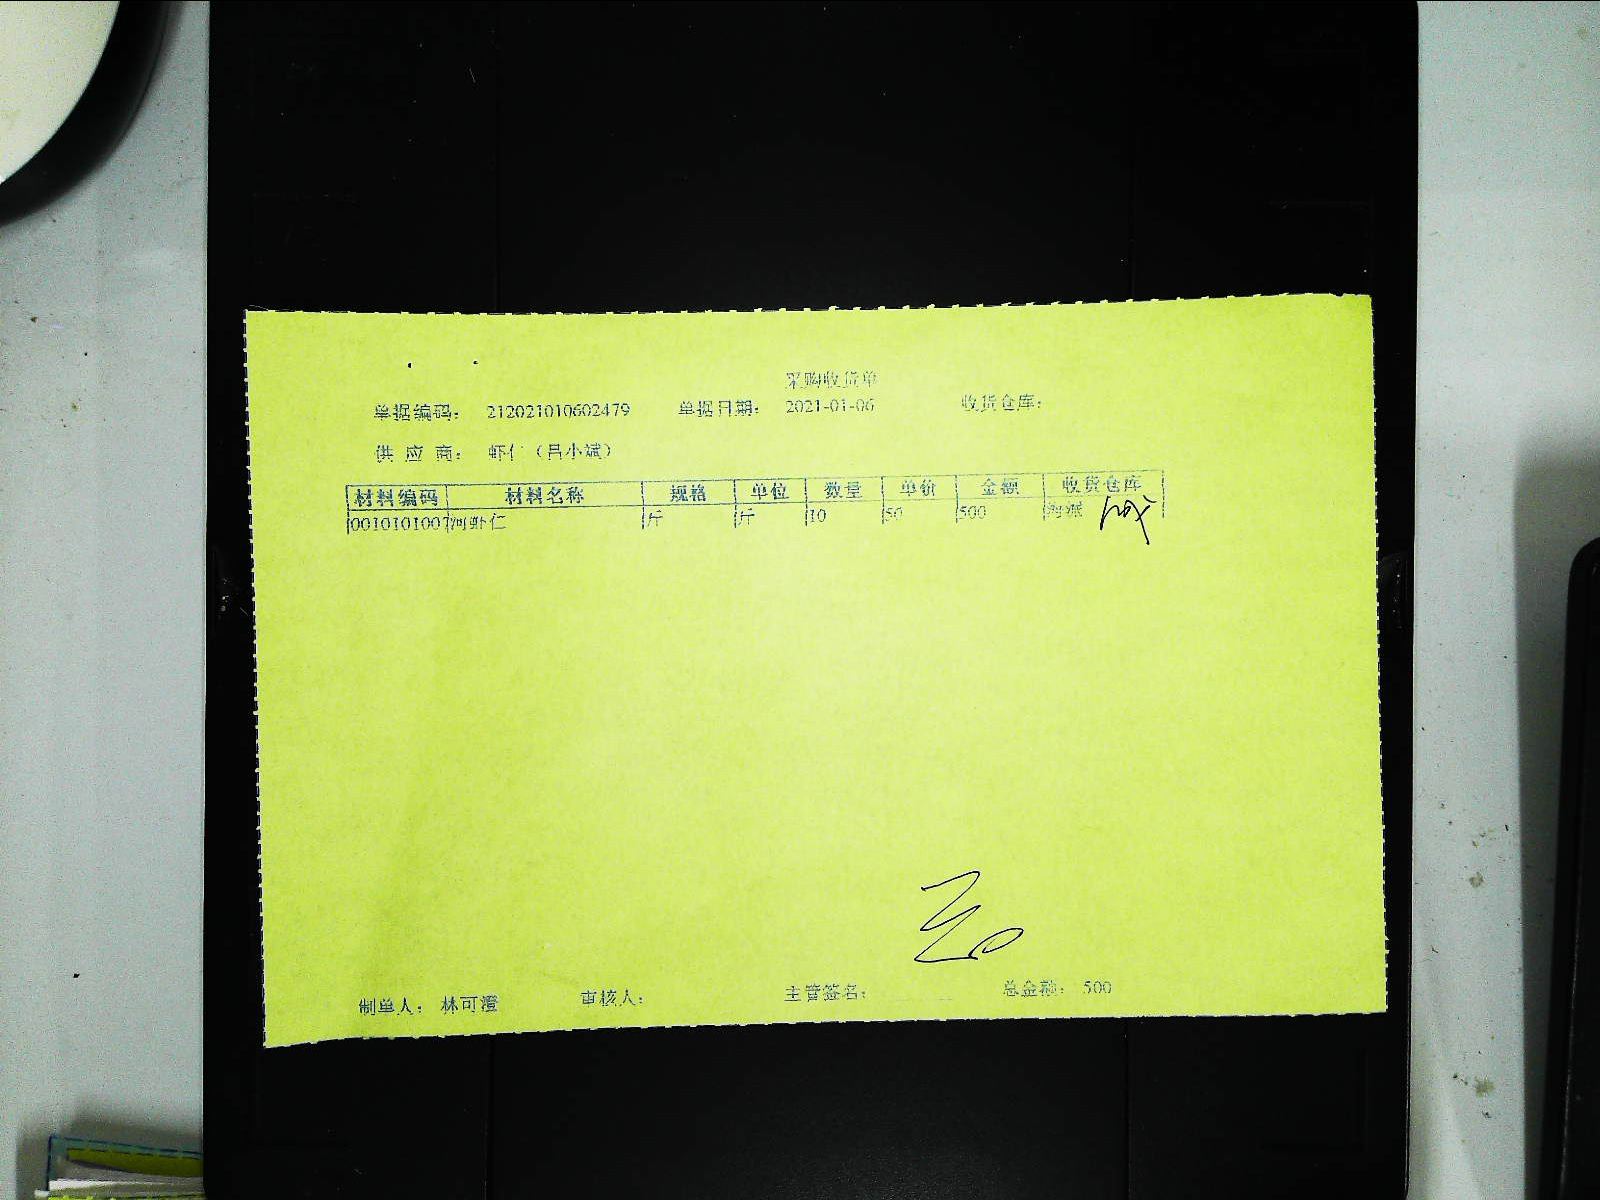 采购收货单
单据编码： 212021010602479 单据日期： 2021-01-06 收货仓库：
供 应 商： 虾仁（吕小斌）
材料编码 材料名称 规格 单位 数量 单价 金额 收货仓库
0010101007 河虾仁 斤 斤 10 50 500 海派
制单人： 林可澄 审核人： 主管签名： 总金额： 500